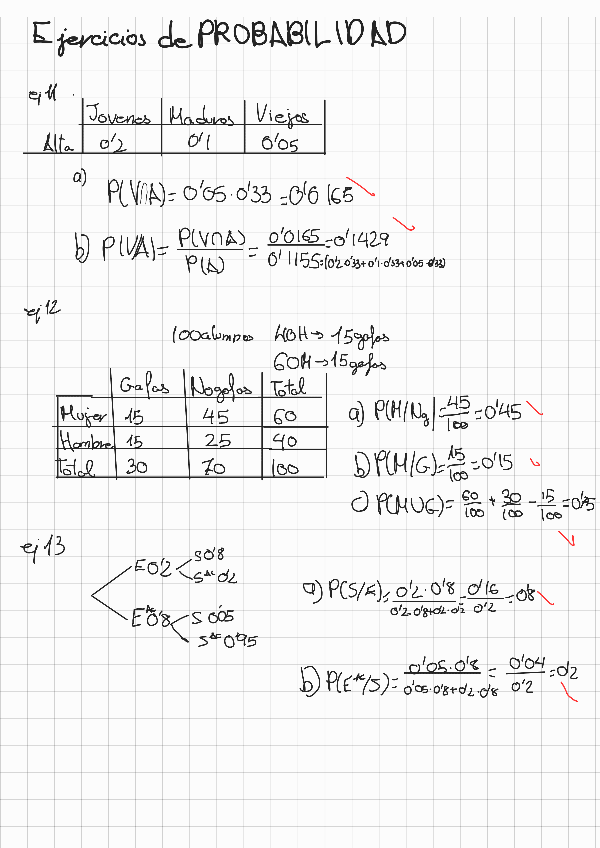 Ejercicios de PROBABILIDAD
ej 11
Jovenes Maduros Viejos
Alta 0'2 0'1 0'05
a)
P(V∩A)= 0'05·0'33 =0'0165
b) P(V/A)= P(V∩A)/P(A) = 0'0165/0'1155 =0'1429
=(0'2·0'33+0'1·0'33+0'05·0'33)
ej 12
100 alumnos 40H→15gafas
60M→15gafas
Gafas Nogafas Total
Mujer 15 45 60
Hombre 15 25 40
Total 30 70 100
a) P(M/Ng)=45/100=0'45
b) P(M/G)=15/100=0'15
c) P(MUG)= 60/100 + 30/100 - 15/100 =0'75
ej 13
E 0'2 S 0'8
S^ac 0'2
E^ac 0'8 S 0'05
S^ac 0'95
a) P(S/E)= 0'2·0'8/0'2·0'8+0'2·0'2 = 0'16/0'2 =0'8
b) P(E^ac/S)= 0'05·0'8/0'05·0'8+0'2·0'8 = 0'04/0'2 =0'2